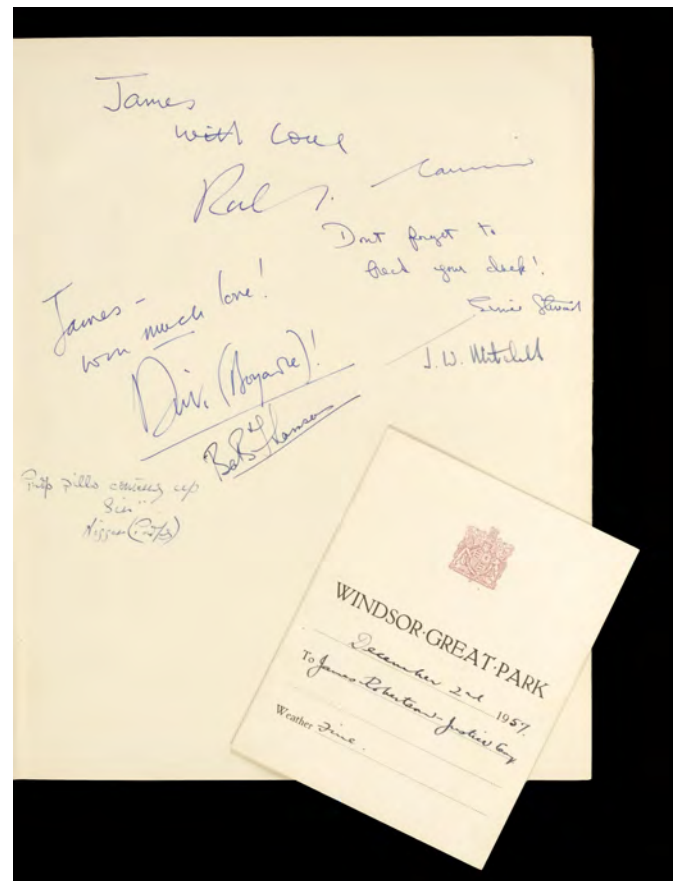 James
with love
Don't forget to
your deck!
Ernie Steward
James –
with much love!
Dirk (Bogarde)!
J. W. Mitchell
Bob Thomson
pills coming up
Sir"
WINDSOR·GREAT·PARK
December 2nd 1957.
To James Robertson-Justice Esq
Weather Fine.